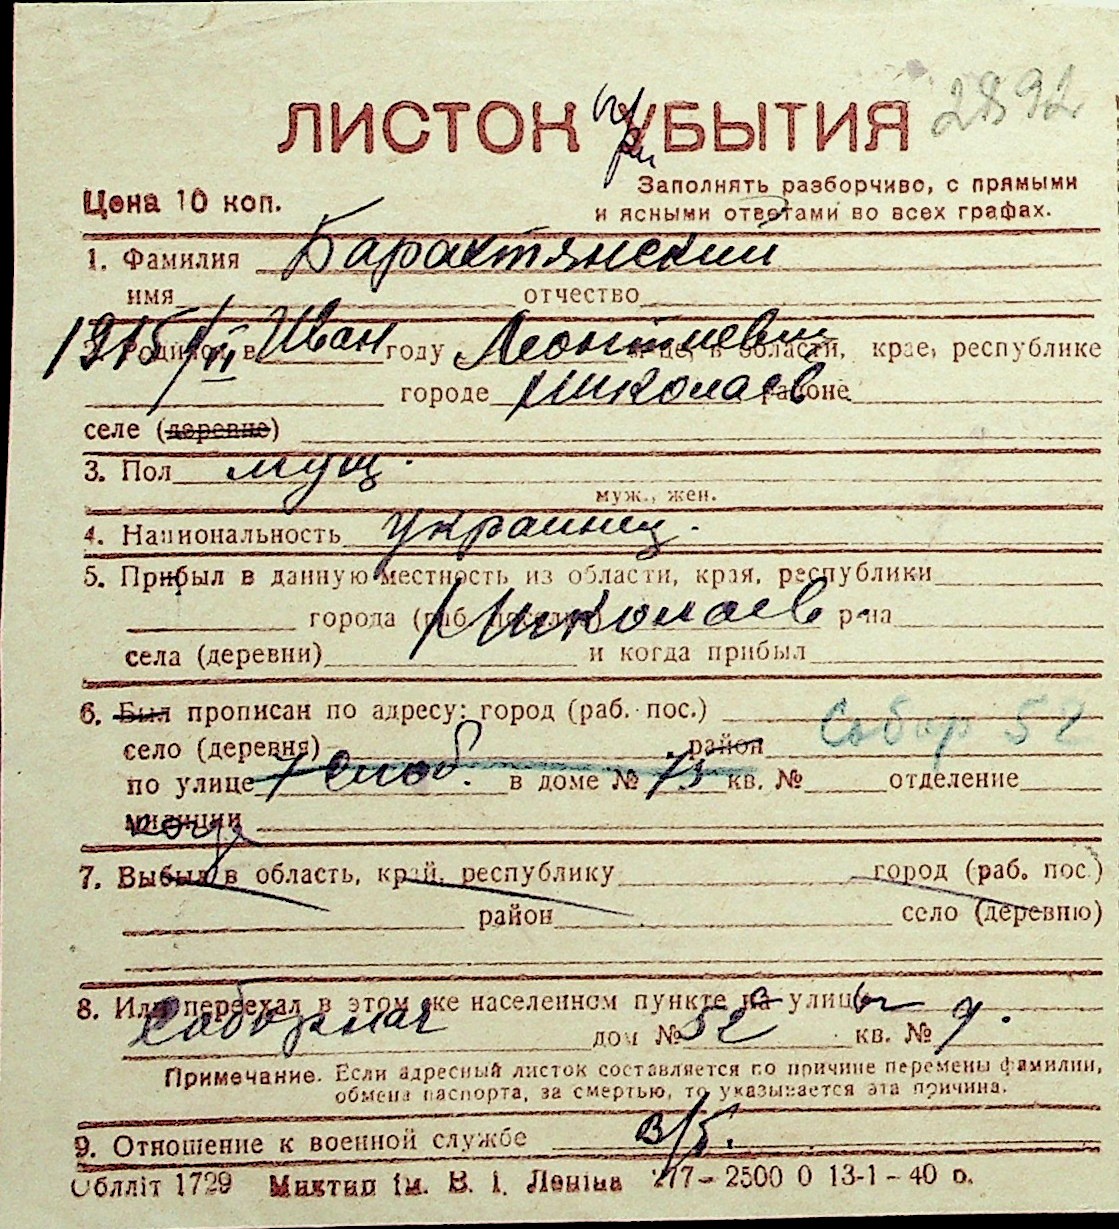 2892
ЛИСТОК при УБЫТИЯ
Цена 10 коп.
Заполнять разборчиво, с прямыми
и ясными ответами во всех графах.
1. Фамилия Барактянский
имя отчество
1915/II Родился в Иван году Леонтиевич це, в области, крае, республике
городе Николаев районе
селе (деревне)
3. Пол мущ.
муж., жен.
4. Национальность украинец.
5. Прибыл в данную местность из области, края, республики
города (раб. поселка) Николаев р-на
села (деревни) и когда прибыл
6. Был прописан по адресу: город (раб. пос.)
село (деревня) район Собор 52
по улице 7 слоб. в доме № 73 кв. № отделение
милиции
7. Выбыл в область, край, республику город (раб. пос.)
район село (деревню)
8. Или переехал в этом же населенном пункте на улицу
Соборная дом № 52 кв. № 9.
Примечание. Если адресный листок составляется по причине перемены фамилии,
обмена паспорта, за смертью, то указывается эта причина.
9. Отношение к военной службе в/б.
Обллiт 1729 Миктип iм. В. I. Ленiна 277-2500 0 13-1-40 р.